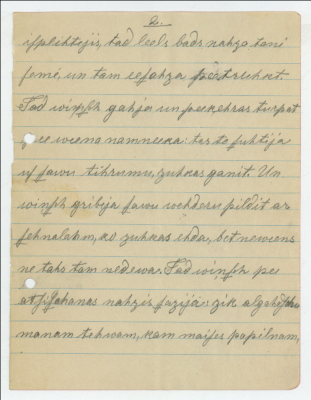 2.
issslihtejis, tad leels bads nahza tani
semē, un tam eesahza peetruhkt.
Tad winsch gahja un peekehras turpat
pee weena namneeka: tas to suhtija
us sawu tihrumu, zuhkas ganit. Un
winsch gribeja sawu wehderu pildit ar
sehnalahm, ko zuhkas ehda, bet neweens
ne tahs tam nedewa. Tad winsch pee
atsischanas nahzis sazija: zik algahdscheem
manam tehwam, kam maises papilnam,